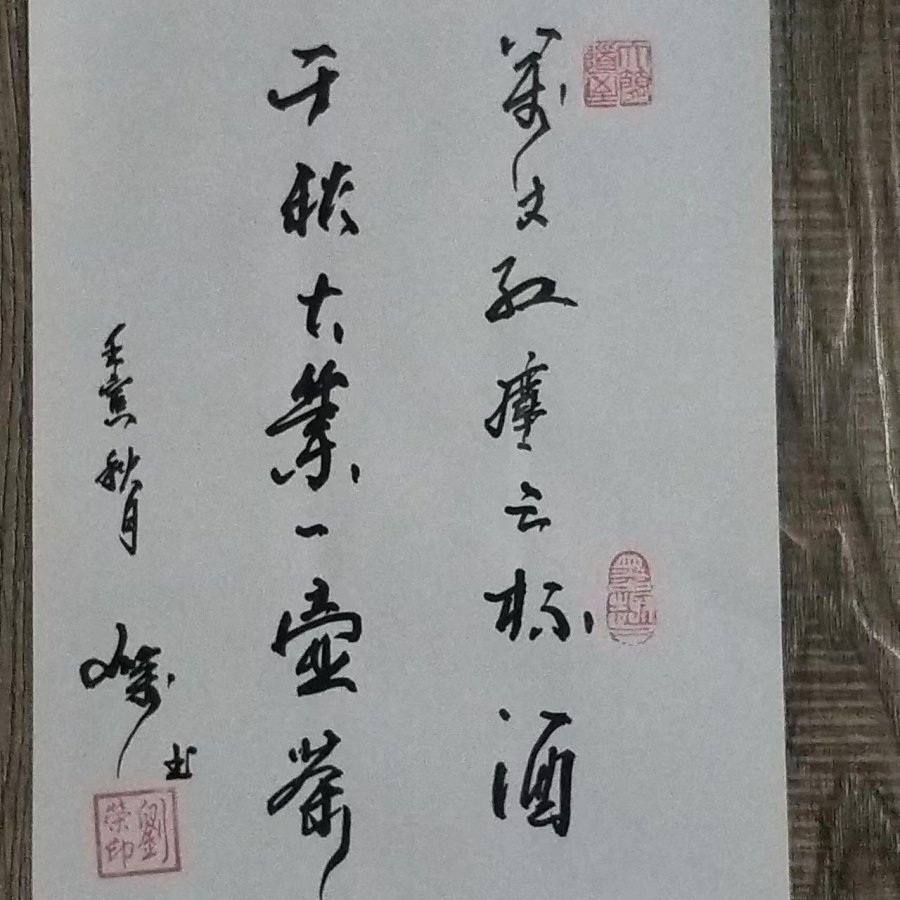 萬丈紅塵三杯酒
千秋大業一壺茶
壬寅秋月
书
劉榮印